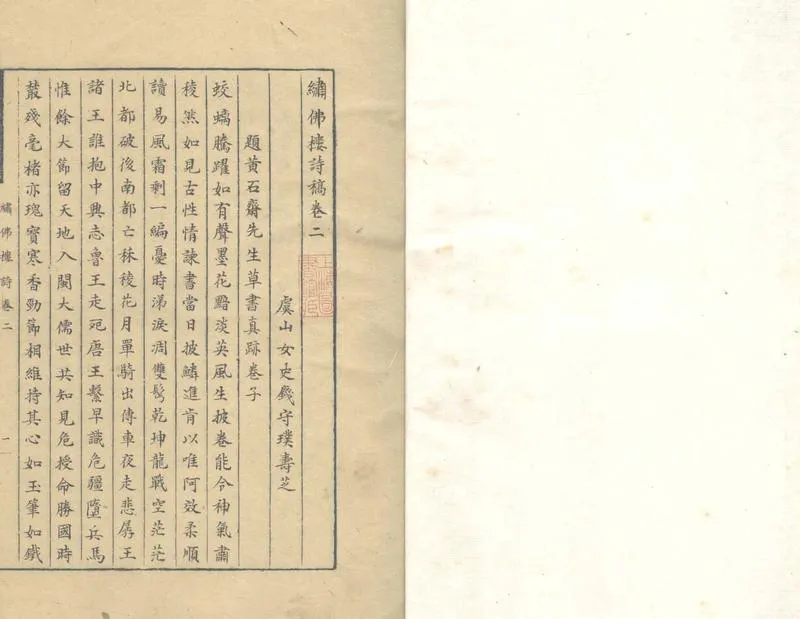 繡佛樓詩稿卷二
虞山女史錢守璞壽芝
題黃石齋先生草書真跡卷子
蛟螭騰躍如有聲墨花黯淡英風生披卷能令神氣肅
稜然如見古性情諫書當日披鱗進肯以唯阿效柔順
讀易風霜剩一編憂時涕淚凋雙髩乾坤龍戰空茫茫
北都破後南都亡秣稜花月單騎出傳車夜走悲孱王
諸王誰抱中興志魯王走死唐王繫早識危疆隳兵馬
惟餘大節留天地入閩大儒世共知見危授命勝國時
叢殘毫楮亦瑰寶寒香勁節相維持其心如玉筆如鐵
繡佛樓詩卷二
一